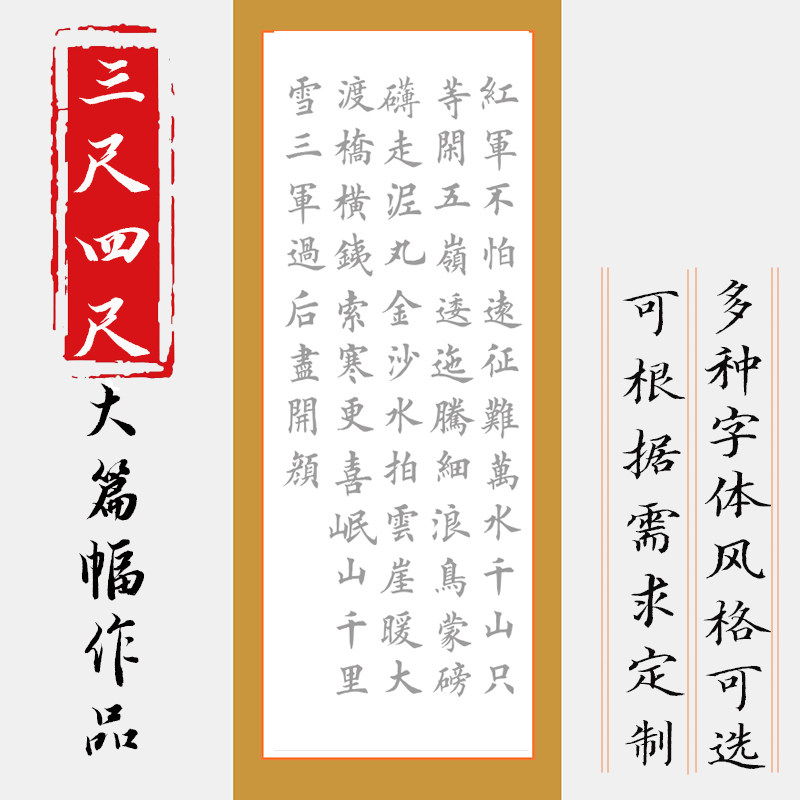 三尺四尺
大篇幅作品
紅軍不怕遠征難萬水千山只
等閑五嶺逶迤騰細浪鳥蒙磅
礴走泥丸金沙水拍雲崖暖大
渡橋橫銕索寒更喜岷山千里
雪三軍過后盡開顔
多种字体风格可选
可根据需求定制